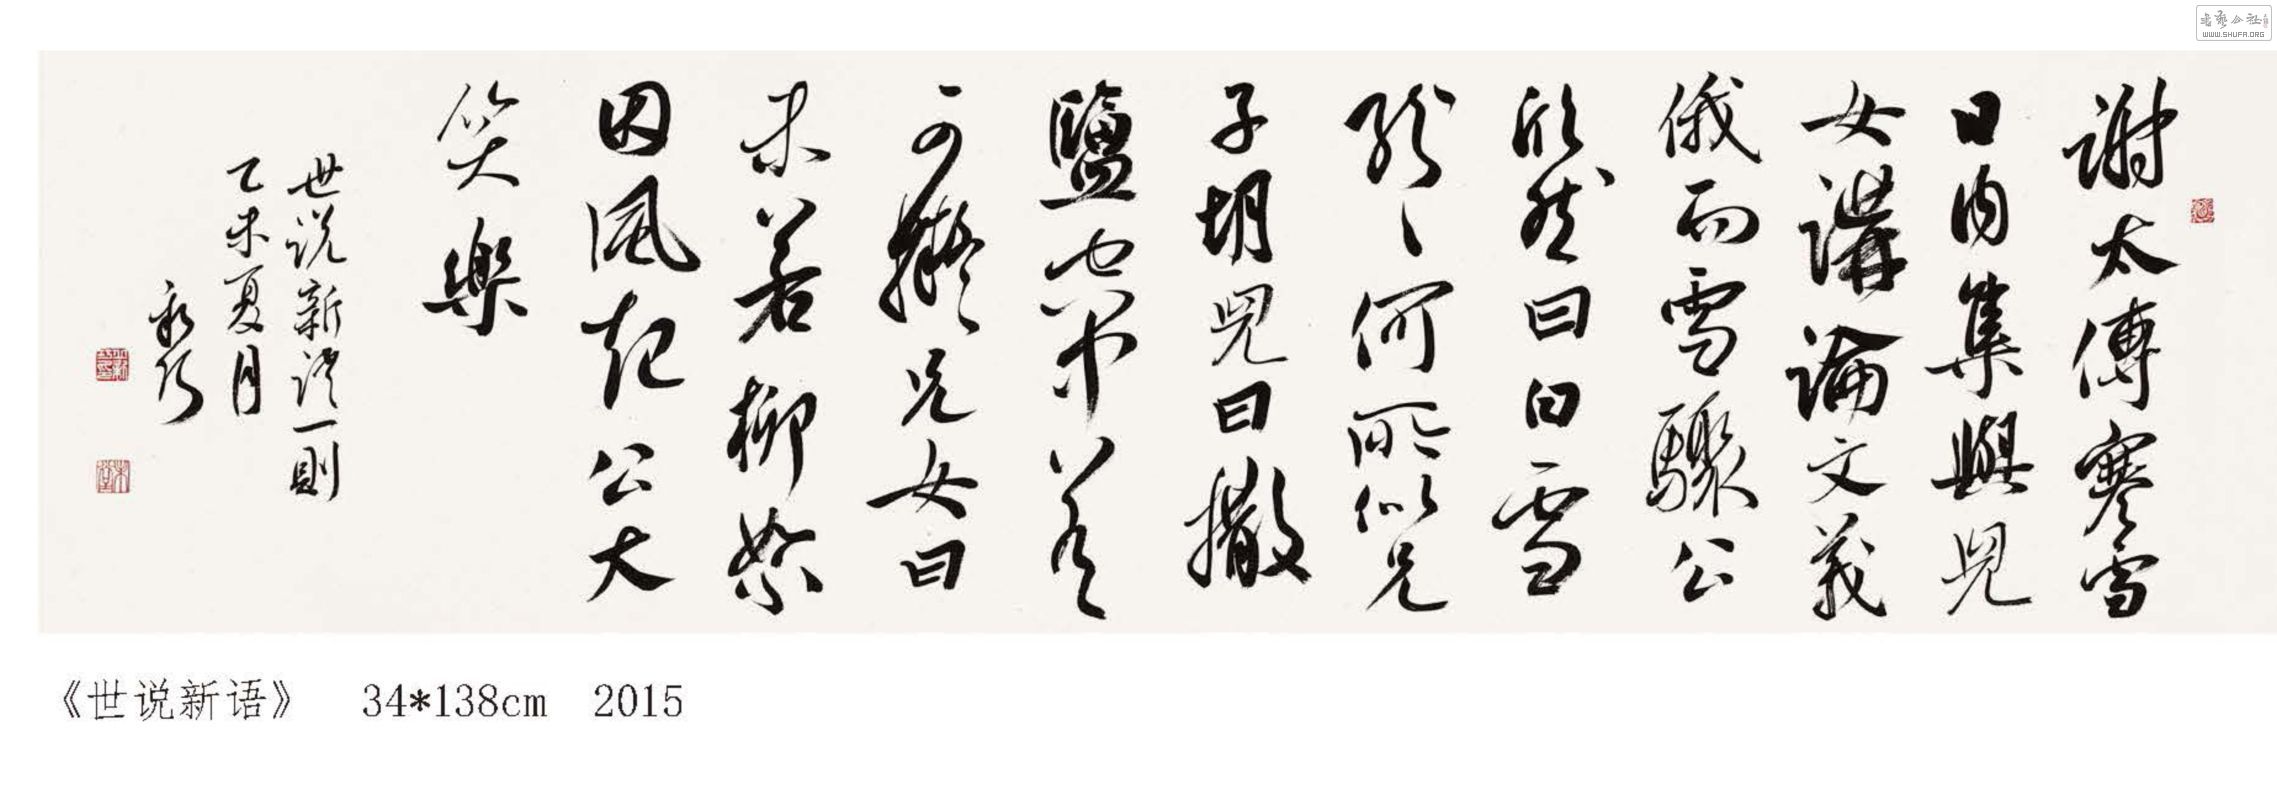 謝太傅寒雪
日内集與兒
女講論文義
俄而雪驟公
欣然曰白雪
紛〻何所似兄
子胡兒曰撒
鹽空中差
可擬兄女曰
未若柳絮
因風起公大
笑樂
世说新语一則
乙未夏月
《世说新语》 34*138cm 2015
WWW.SHUFA.ORG